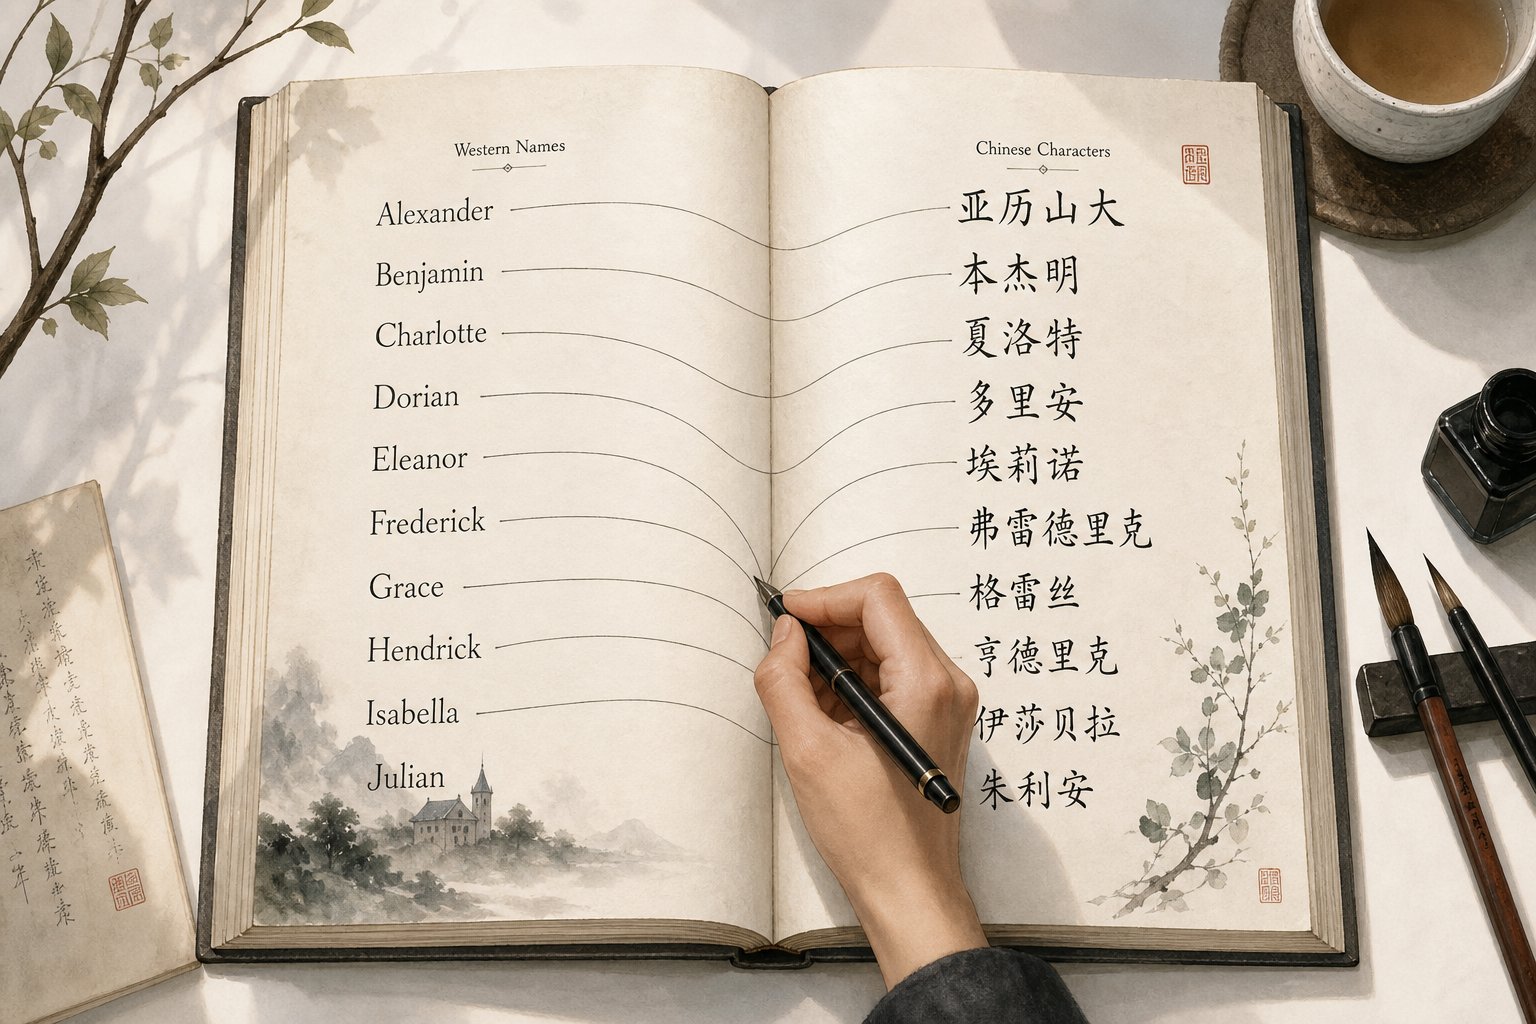 Western Names
Alexander
Benjamin
Charlotte
Dorian
Eleanor
Frederick
Grace
Hendrick
Isabella
Julian
Chinese Characters
亚历山大
本杰明
夏洛特
多里安
埃莉诺
弗雷德里克
格雷丝
亨德里克
伊莎贝拉
朱利安